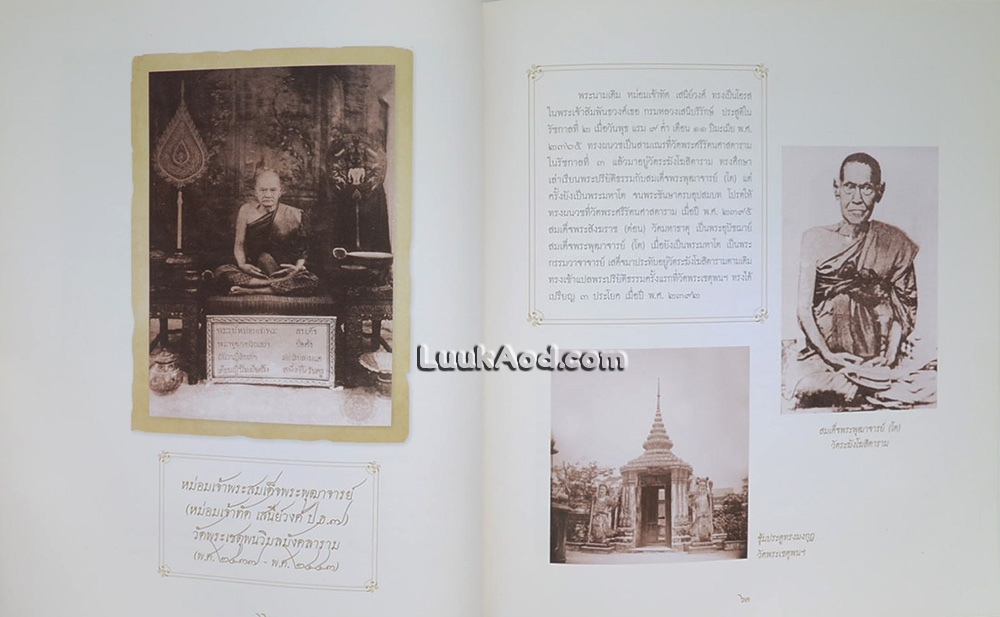 หม่อมเจ้าพระสมเด็จพระพุฒาจารย์
(หม่อมเจ้าทัด เสนีย์วงศ์ ป.ธ.๗)
วัดพระเชตุพนวิมลมังคลาราม
(พ.ศ. ๒๔๓๗ - พ.ศ. ๒๔๔๗)
พระนามเดิม หม่อมเจ้าทัด เสนีย์วงศ์ ทรงเป็นโอรส
ในพระเจ้าสัมพันธวงศ์เธอ กรมหลวงเสนีบริรักษ์ ประสูติใน
รัชกาลที่ ๒ เมื่อวันพุธ แรม ๙ ค่ำ เดือน ๑๑ ปีมะเมีย พ.ศ.
๒๓๖๕ ทรงผนวชเป็นสามเณรที่วัดพระศรีรัตนศาสดาราม
ในรัชกาลที่ ๓ แล้วมาอยู่วัดระฆังโฆสิตาราม ทรงศึกษา
เล่าเรียนพระปริยัติธรรมกับสมเด็จพระพุฒาจารย์ (โต) แต่
ครั้งยังเป็นพระมหาโต จนพระชันษาครบอุปสมบท โปรดให้
ทรงผนวชที่วัดพระศรีรัตนศาสดาราม เมื่อปี พ.ศ. ๒๓๘๕
สมเด็จพระสังฆราช (ด่อน) วัดมหาธาตุ เป็นพระอุปัชฌาย์
สมเด็จพระพุฒาจารย์ (โต) เมื่อยังเป็นพระมหาโต เป็นพระ
กรรมวาจาจารย์ เสด็จมาประทับอยู่วัดระฆังโฆสิตารามตามเดิม
ทรงเข้าแปลพระปริยัติธรรมครั้งแรกที่วัดพระเชตุพนฯ ทรงได้
เปรียญ ๓ ประโยค เมื่อปี พ.ศ. ๒๓๙๒
LuukAod.com
สมเด็จพระพุฒาจารย์ (โต)
วัดระฆังโฆสิตาราม
ซุ้มประตูทรงมงกุฎ
วัดพระเชตุพนฯ
๖๓